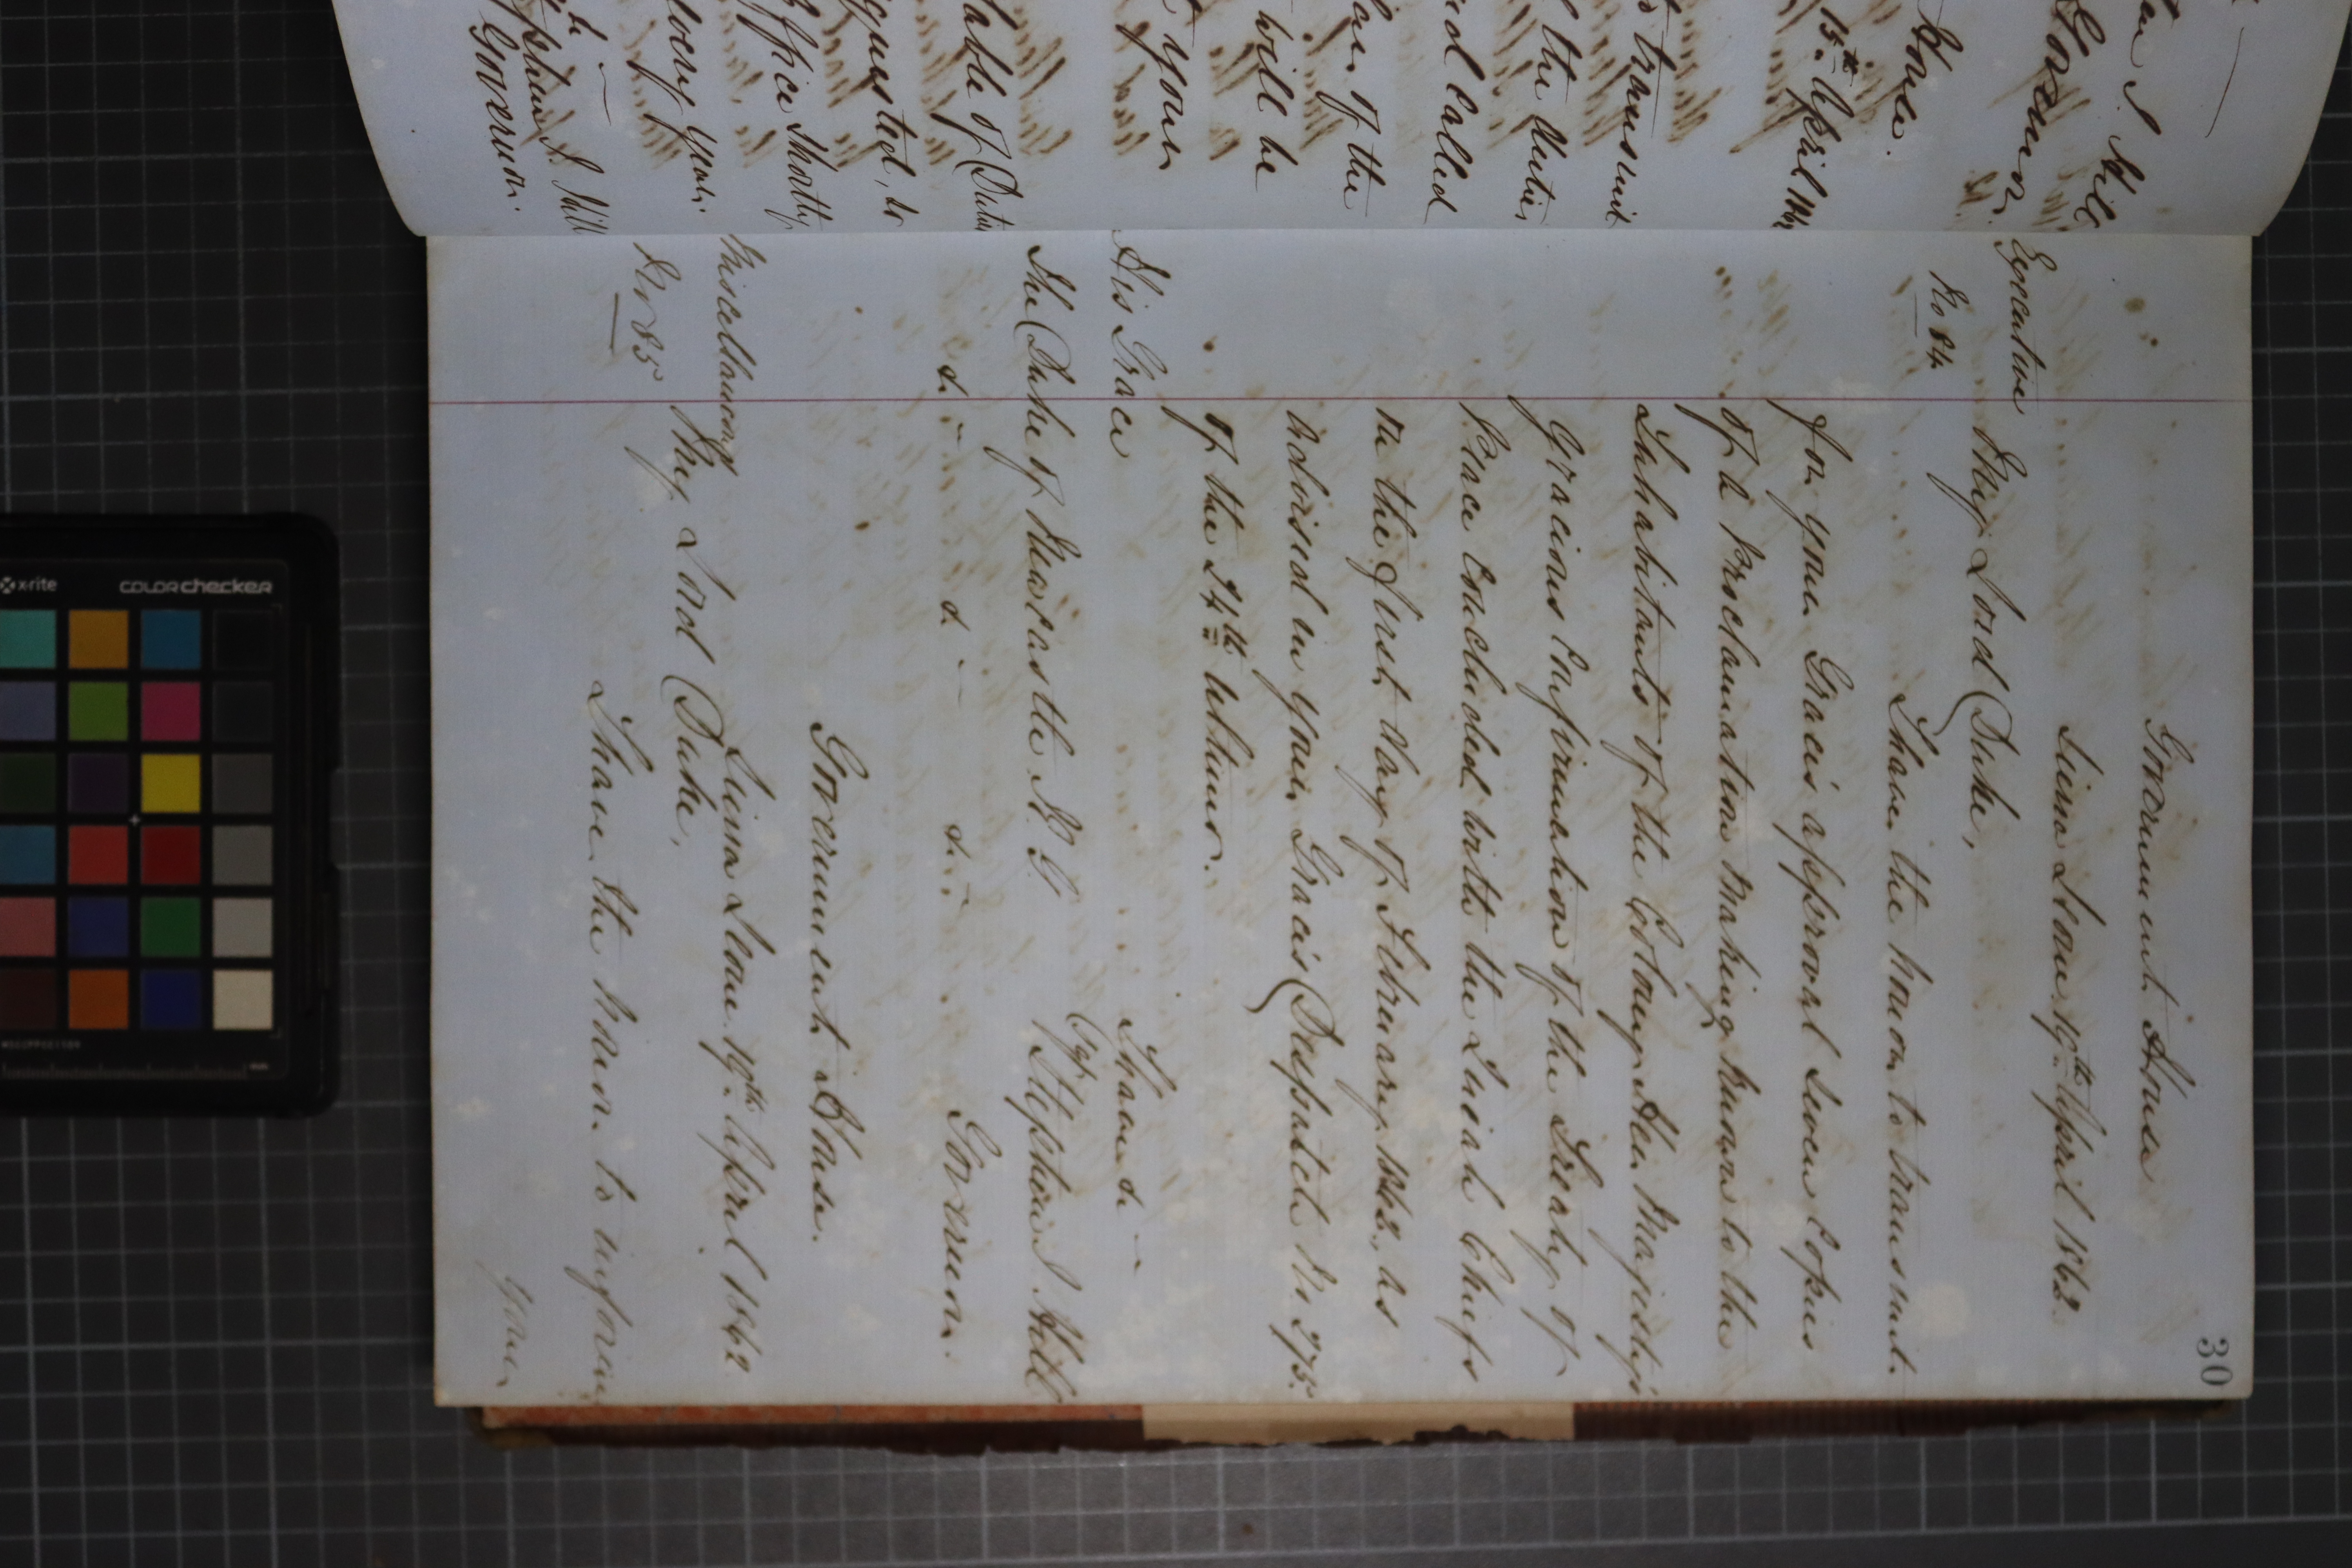 30
Government House
Sierra Leone 19th April 1862.
Executive
No 84
My Lord Duke,
I have the honor to transmit
for your Grace's approval seven Copies
of a Proclamation making known to the
Inhabitants of the Colony Her Majesty's
Gracious Confirmation of the Treaty of
Peace concluded with the Quiah Chiefs
on the first day of February 1862, as
advised in your Grace's Despatch No 175.
of the 24th Ultimo.
I have &c
His Grace
(Sgd) Stephen J Hill
The Duke of Newcastle K. G
&c - &c - &c - Governor.
Government House.
Sierra Leone. 19th April 1862
Miscellaneous
My Lord Duke,
No 85
I have the honor to inform
your
an J Hill
Governor
House.
15th April 1862
transmit
the duties
and called
of the
will be
your
able of Duties
requested, to
Office shortly
every year.
Stephen J. Hill
Governor.
x-rite
colorchecker